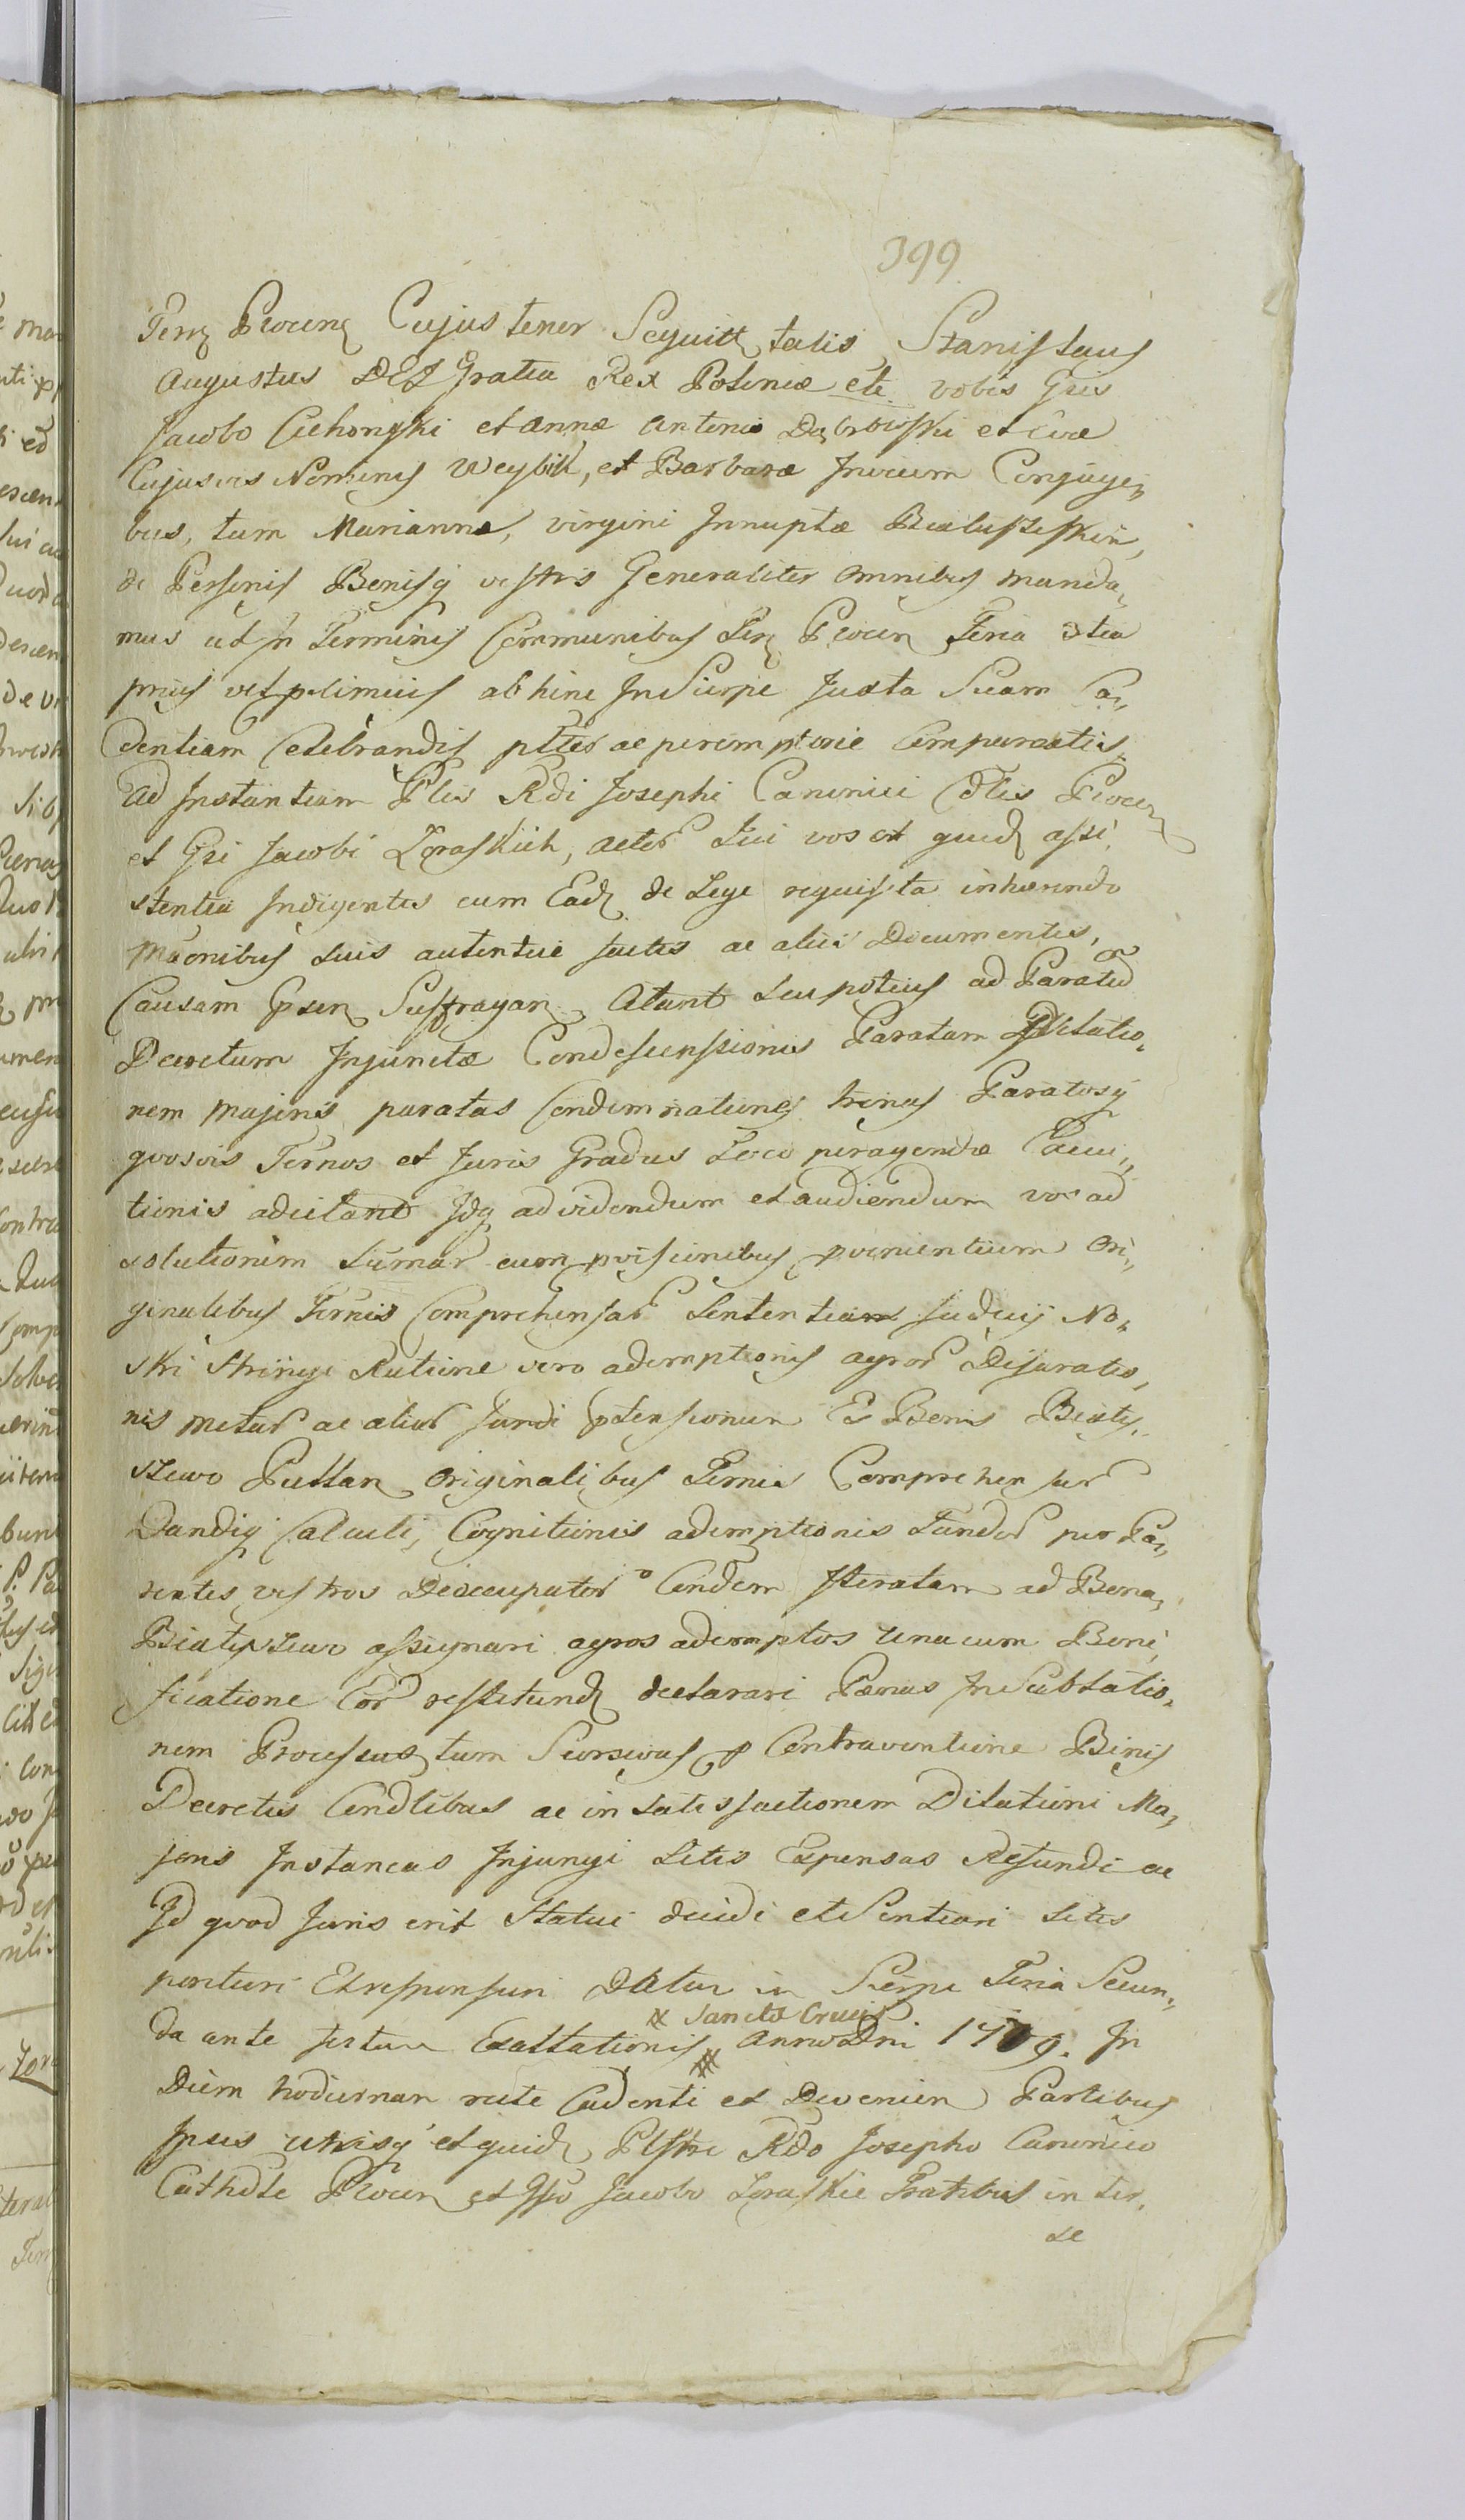 399
Terrę Plocenę Cujus tenor Sequitt talis Stanislaus
Augustus DEI Gratia Rex Poloniæ etc. vobis Gsis
Jacobo Ciehonſki et Annæ Antonio Dąbrowſki et Evæ
Cujusvis Nominis Weybik, et Barbaræ Invicem Conjugy„
bus, tum Mariannæ, virgini Innuptæ
de Perſonis Bonisq veſtris Generaliter Omnibus manda„
mus ut in Terminis Communibus Terr Plocen Feria 3tia
prius vel proximius ab hinc In Sierpc Juxta Suam Ca„
dentiam Celebrandis pltes ac peremptorie Compareatis
Ad Instantiam Plis Rdi Josephi Canonici Cdlis Plocen
et Gsi Jacobi Zoraſkich, Actor Qui vos ut quidę aſsi„
stentia Indigentes cum Eadę de Lege requiſita inhærendo
Maonibus suis autentice factis ac aliis Documentis,
Causam Ipsen Suffragan Citant seu potius ad Paratū
Decretum Injunctæ Condeſcenſsionis Paratam Dilatio„
nem Majoris paratas Condemnationes trinas Paratosq
quosvis Ternos et Juris Gradus Loco peragendæ Cacu„
tionis adcitant Idq ad videndum et audiendum vos ad
solutionem Sumar cum proviſionibus provenientium Ori„
ginalibus Ternis Comprehenſar Sententiam Judicij No„
stri Stringi Ratione vero ademptionis agror Disparatio„
nis metar ac alior fundi ptenſionum Ex Bonis Bialy„
szewo Pullan Originalibus Ternis Comprehenſar
Dandiq Calculi, Cognitionis ademptionis Fundor per Pa„
rentes veſtros Deoccupator Condem Iteratam ad Bona
Bialyszewo aſsignari agros ademptos unacum Boni„
ficatione Eor reſtituendę declarari Pœnas In Sublatio„
nem Proceſsus tum Seorsivas p Contraventione Binis
Decretis Condlibus ac in satisfactionem Dilationi Ma„
joris Instancas Injungi Litis Expensas Refundi ac
Id quod Juris erit Statui decidi et Sentiari Litis
parituri Et reſponſuri Datum in Sierpc Feria Secun„
da ante feſtum Exaltationis # Sanctæ Crucis Anno Dni 1789. In
Diem hodiernam rite Cadenti et Devenien Partibus
Ipsis utrisq et quidę Plſtri Rdo Josepho Canonico
Cathdle Plocen et Gſo Jacobo Zoraſkie Fratribus inter„
se